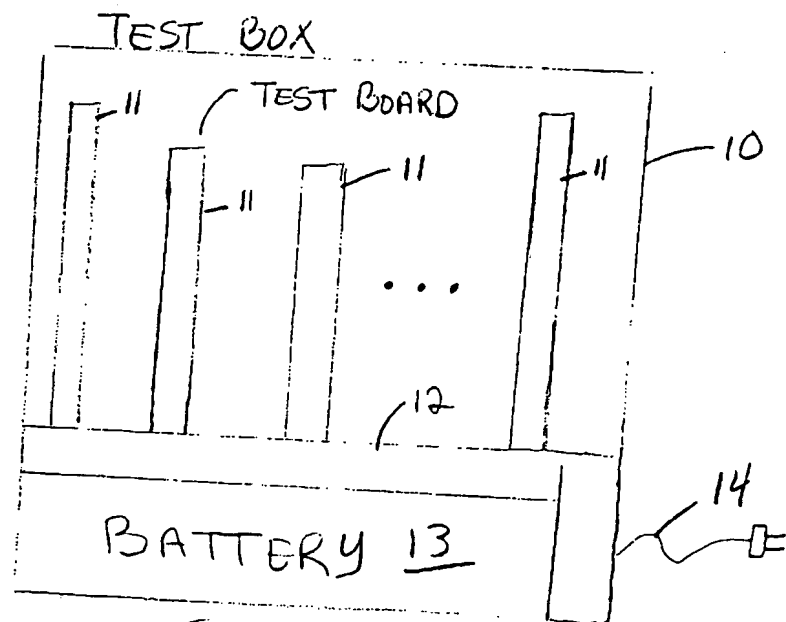 TEST BOX
11
TEST BOARD
10
11
11
11
...
12
14
BATTERY 13